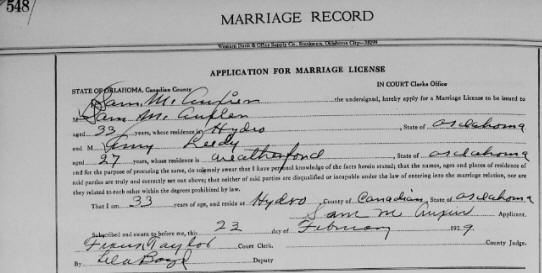 548
MARRIAGE RECORD
APPLICATION FOR MARRIAGE LICENSE
STATE OF OKLAHOMA, Canadian County IN COURT Clerks Office
Sam M. the undersigned, hereby apply for a Marriage License to be issued to
M Sam M.
aged 33 years, whose residence is Hydro, State of Oklahoma
and M Amy Reedy
aged 27 years, whose residence is Weatherford, State of Oklahoma
and for the purpose of procuring the same, do solemnly swear that I have personal knowledge of the facts herein stated; that the names, ages and places of residence of
said parties are truly and correctly set out above; that neither of said parties are disqualified or incapable under the law of entering into the marriage relation, nor are
they related to each other within the degrees prohibited by law.
That I am 33 years of age, and reside at Hydro, County of Canadian, State of Oklahoma
Sam M Applicant.
Subscribed and sworn to before me, this 23 day of February 1929
Taylor Court Clerk. County Judge.
By Lela Boyd Deputy